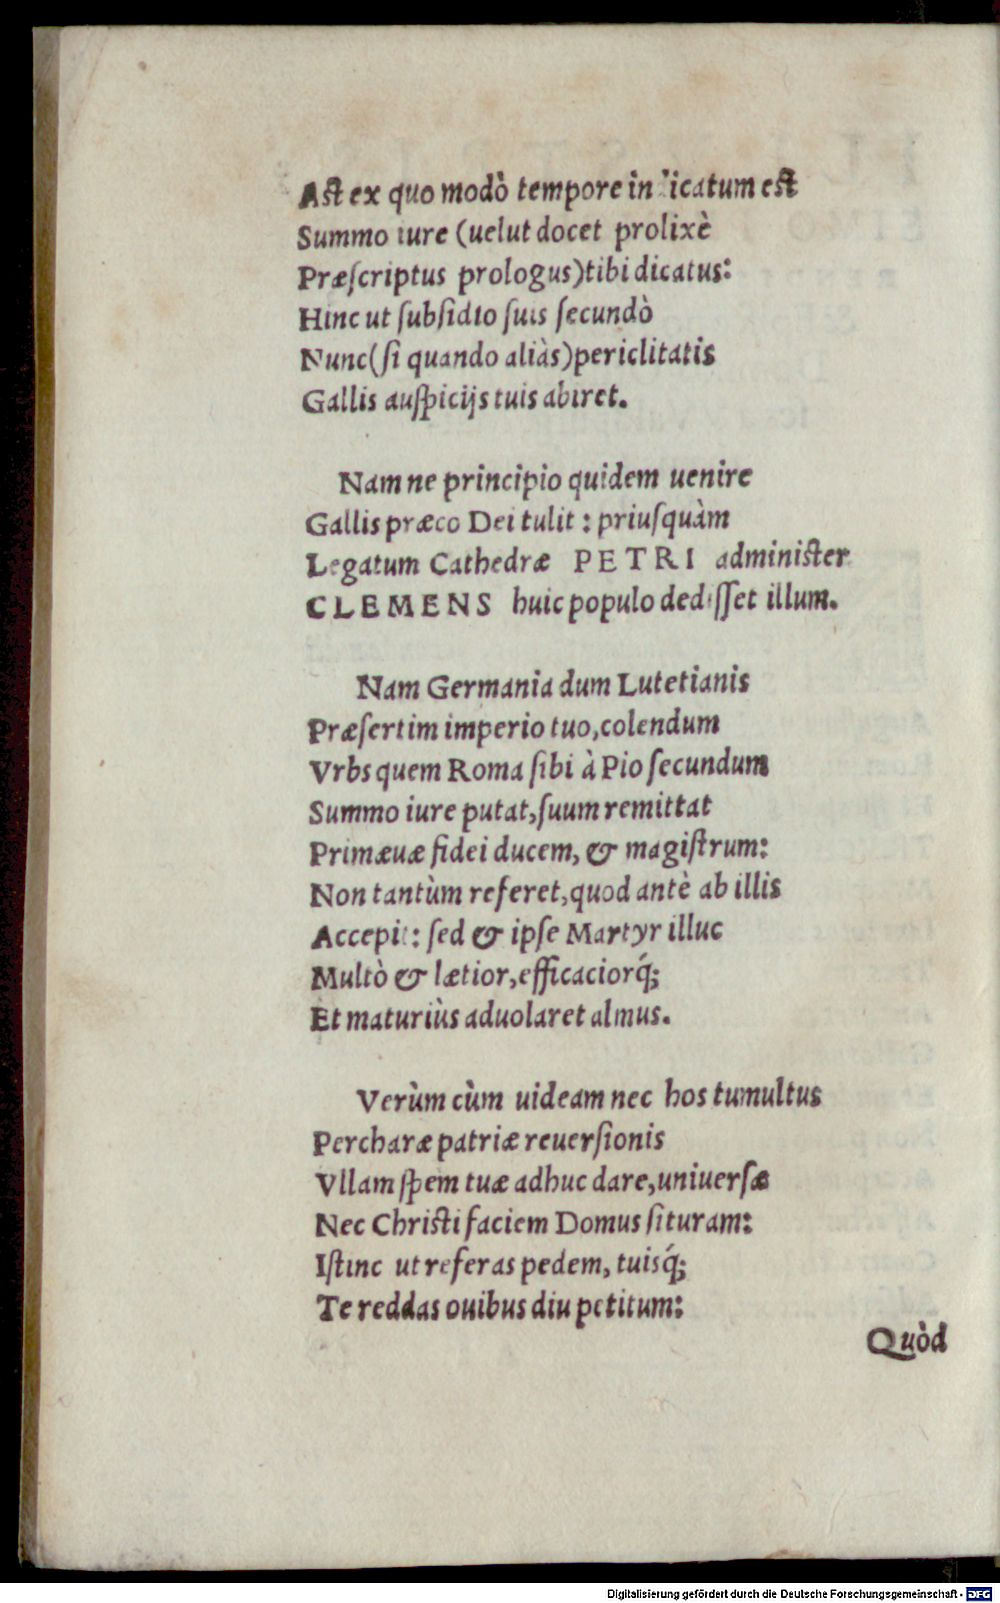 Ast ex quo modò tempore indicatum est
Summo iure (uelut docet prolixè
Præſcriptus prologus) tibi dicatus:
Hinc ut ſubſidio ſuis ſecundò
Nunc (ſi quando aliàs) periclitatis
Gallis auſpicijs tuis abiret.
Nam ne principio quidem uenire
Gallis præco Dei tulit: priuſquàm
Legatum Cathedræ PETRI administer
CLEMENS huic populo dediſſet illum.
Nam Germania dum Lutetianis
Præſertim imperio tuo, colendum
Vrbs quem Roma ſibi à Pio ſecundum
Summo iure putat, ſuum remittat
Primæuæ fidei ducem, & magiſtrum:
Non tantùm referet, quod antè ab illis
Accepit: ſed & ipſe Martyr illuc
Multò & lætior, efficaciorq́;
Et maturiùs aduolaret almus.
Verùm cùm uideam nec hos tumultus
Percharæ patriæ reuerſionis
Vllam ſpem tuæ adhuc dare, uniuerſæ
Nec Christi faciem Domus ſituram:
Iſtinc ut referas pedem, tuisq́;
Te reddas ouibus diu petitum:
Quòd
Digitalisierung gefördert durch die Deutsche Forschungsgemeinschaft - DFG